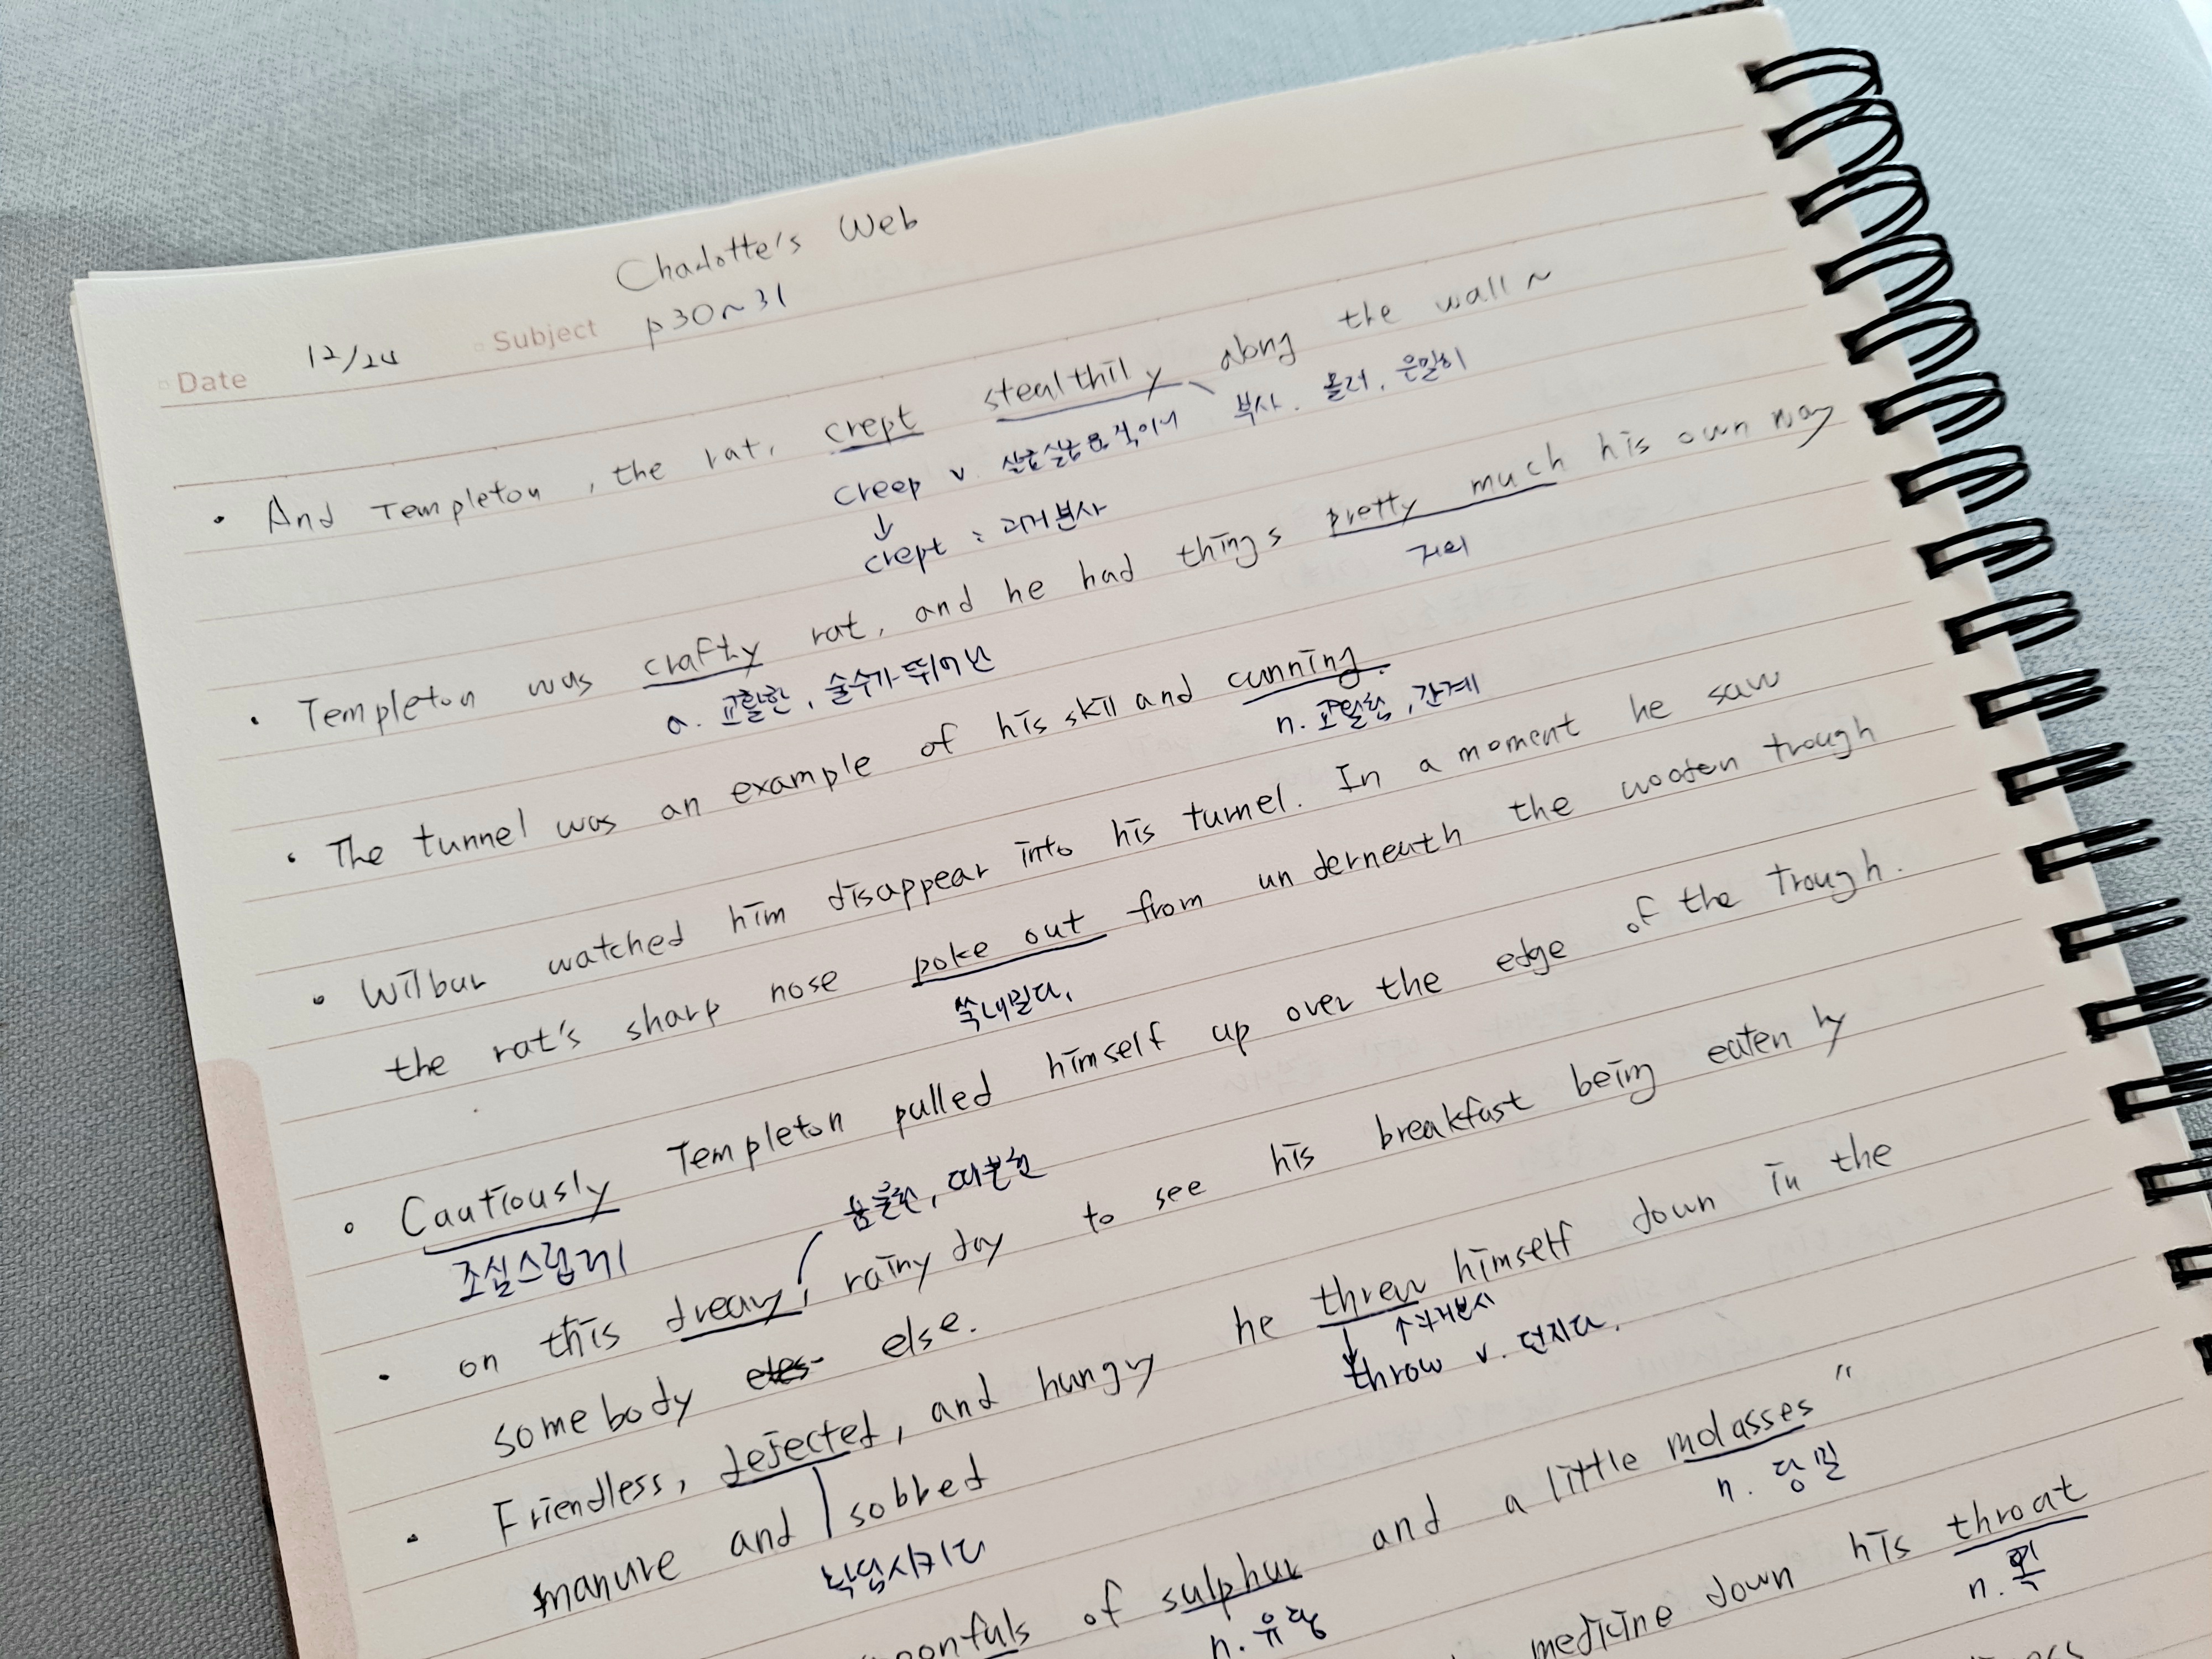 Charlotte's Web
Date 12/24 Subject p30~31
• And Templeton, the rat, crept stealthily along the wall ~
creep v. 살금살금 움직이다 부사. 몰래, 은밀히
↓
crept : 과거분사
• Templeton was crafty rat, and he had things pretty much his own way
a. 교활한, 술수가 뛰어난 거의
• The tunnel was an example of his skill and cunning.
n. 교활함, 간계
• Wilbur watched him disappear into his tunnel. In a moment he saw
the rat's sharp nose poke out from underneath the wooden trough
쑥 내밀다.
• Cautiously Templeton pulled himself up over the edge of the trough.
조심스럽게 음울한, 따분한
• on this dreary, rainy day to see his breakfast being eaten by
somebody else.
• Friendless, dejected, and hungry he threw himself down in the
↑과거분사
throw v. 던지다.
manure and sobbed
낙담시키다
of sulphur and a little molasses"
n. 유황 n. 당밀
medicine down his throat
n. 목